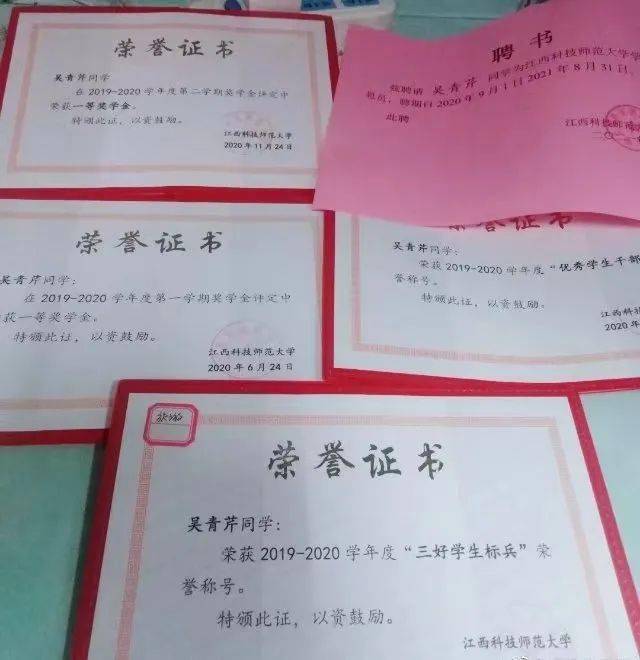 荣誉证书
吴青芹同学
在2019-2020学年度第二学期奖学金评定中
荣获一等奖学金。
特颁此证，以资鼓励。
江西科技师范大学
2020年11月24日
聘书
兹聘请 吴青芹 同学为江西科技师范大学学
聘期自2020年9月1日2021年8月31日，
此聘
江西科技师范
荣誉证书
吴青芹同学：
在2019-2020学年度第一学期奖学金评定中
获一等奖学金。
特颁此证，以资鼓励。
江西科技师范大学
2020年6月24日
荣誉证书
吴青芹同学：
荣获2019-2020学年度“优秀学生干部
誉称号。
特颁此证，以资鼓励。
江西科技师
2020年
荣誉证书
吴青芹同学：
荣获2019-2020学年度“三好学生标兵”荣
誉称号。
特颁此证，以资鼓励。
江西科技师范大学